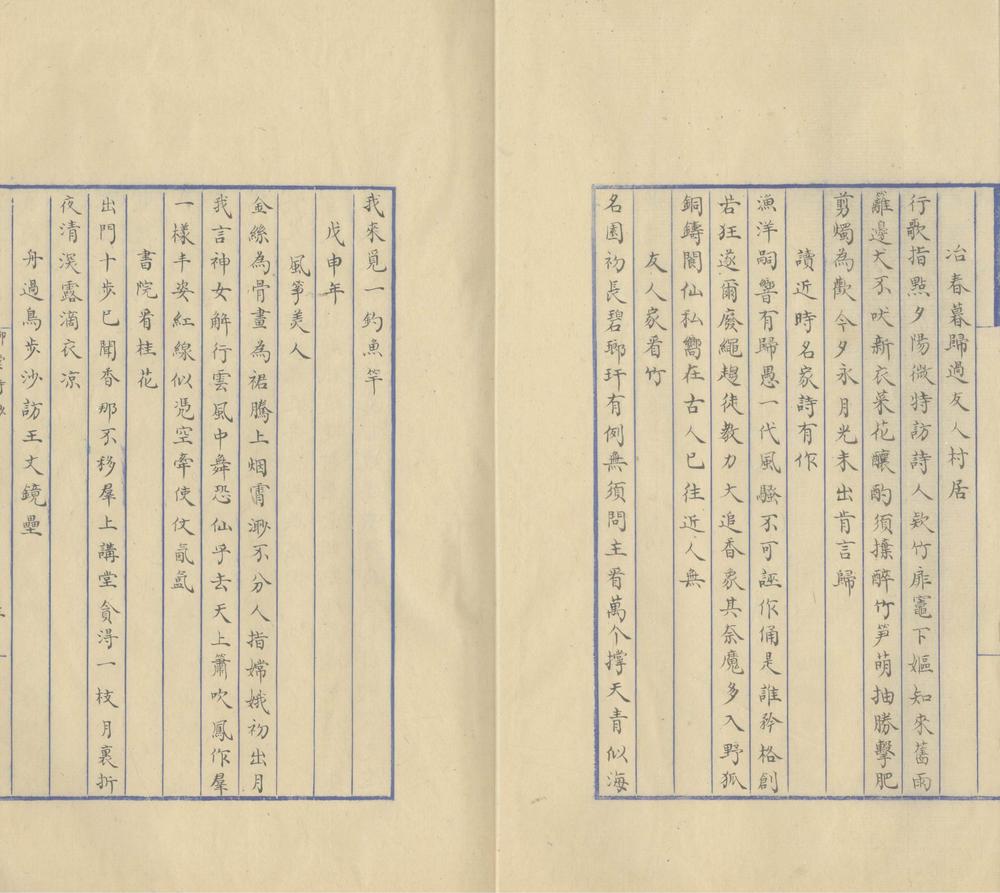 冶春暮歸過友人村居
行歌指點夕陽微特訪詩人欵竹扉竈下嫗知來舊雨
籬邊犬不吠新衣菜花釀酌須㨪醉竹笋萌抽勝擊肥
剪燭為歡今夕永月光未出肯言歸
讀近時名家詩有作
漁洋嗣響有歸愚一代風騷不可誣作俑是誰矜格創
若狂遂爾廢繩趨徒教力大追香象其奈魔多入野狐
銅鑄閬仙私嚮在古人已往近人無
友人家看竹
名園初長碧瑯玕有例無須問主看萬个撐天青似海
我來覓一釣魚竿
戊申年
風箏美人
金絲為骨畫為裙騰上烟霄渺不分人指嫦娥初出月
我言神女解行雲風中舞恐仙乎去天上簫吹鳳作羣
一樣丰姿紅線似憑空牽使伩氤氳
書院看桂花
出門十步已聞香那不移羣上講堂貪淂一枝月裏折
夜清溪露滴衣凉
舟過鳥步沙訪王丈鏡壘